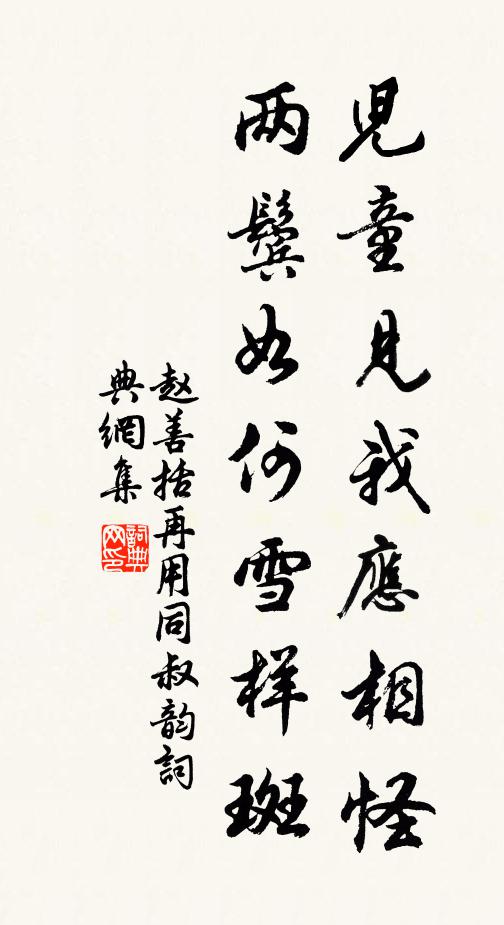 児童見我應相怪
两鬓如何雪样斑
赵善括再用同叔韵詞
典網集
詞典
网印